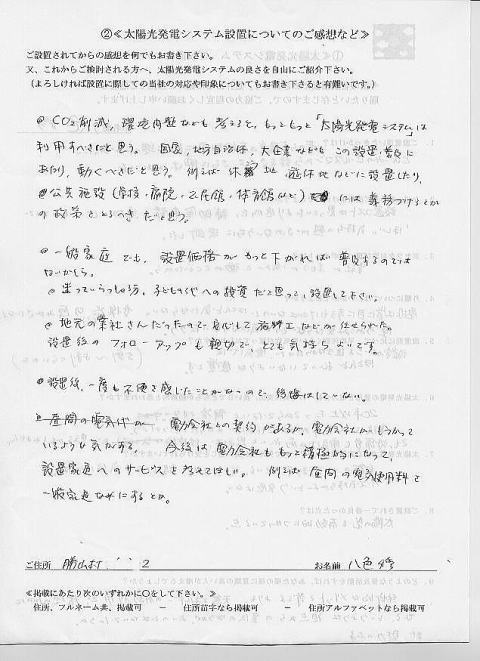 ②≪太陽光発電システム設置についてのご感想など≫
ご設置されてからの感想を何でもお書き下さい。
又、これからご検討される方へ、太陽光発電システムの良さを自由にご紹介下さい。
(よろしければ設置に際しての当社の対応や印象についてもお書き下さると有難いです。)
◎CO2削減、環境問題などを考えると、もっともっと「太陽光発電システム」は
利用すべきだと思う。国家、地方自治体、大企業などもこの設置、普及に
あたり、動くべきだと思う。例えば休 地、遊休地などに設置したり、
◎公共施設(学校・病院・公民館・体育館など)には義務づけるとか
の政策をとるべきだと思う。
◎一般家庭でも、設置価格がもっと下がれば普及するのでは
ないかしら。
◎迷っていらっしゃる方、子どもの代への投資だと思って、設置して下さい。
◎地元の業社さんだったので安心して施工などが任せられた。
設置後のフォローアップも親切で、とても気持ちよいです。
◎設置後、一度も不便を感じたことがないので、後悔はしていない。
昼間の電気代が 電力会社との契約があるが、電力会社がもうかって
いるような気がする。今後は電力会社ももっと積極的になって
設置家庭へのサービスを考えてほしい。例えば昼間の電気使用料を
一般家庭なみにするとか。
ご住所 勝山村 2 お名前 八色
≪掲載にあたり次のいずれかに○をして下さい。≫
住所、フルネーム共、掲載可 － 住所苗字なら掲載可 － 住所アルファベットなら掲載可